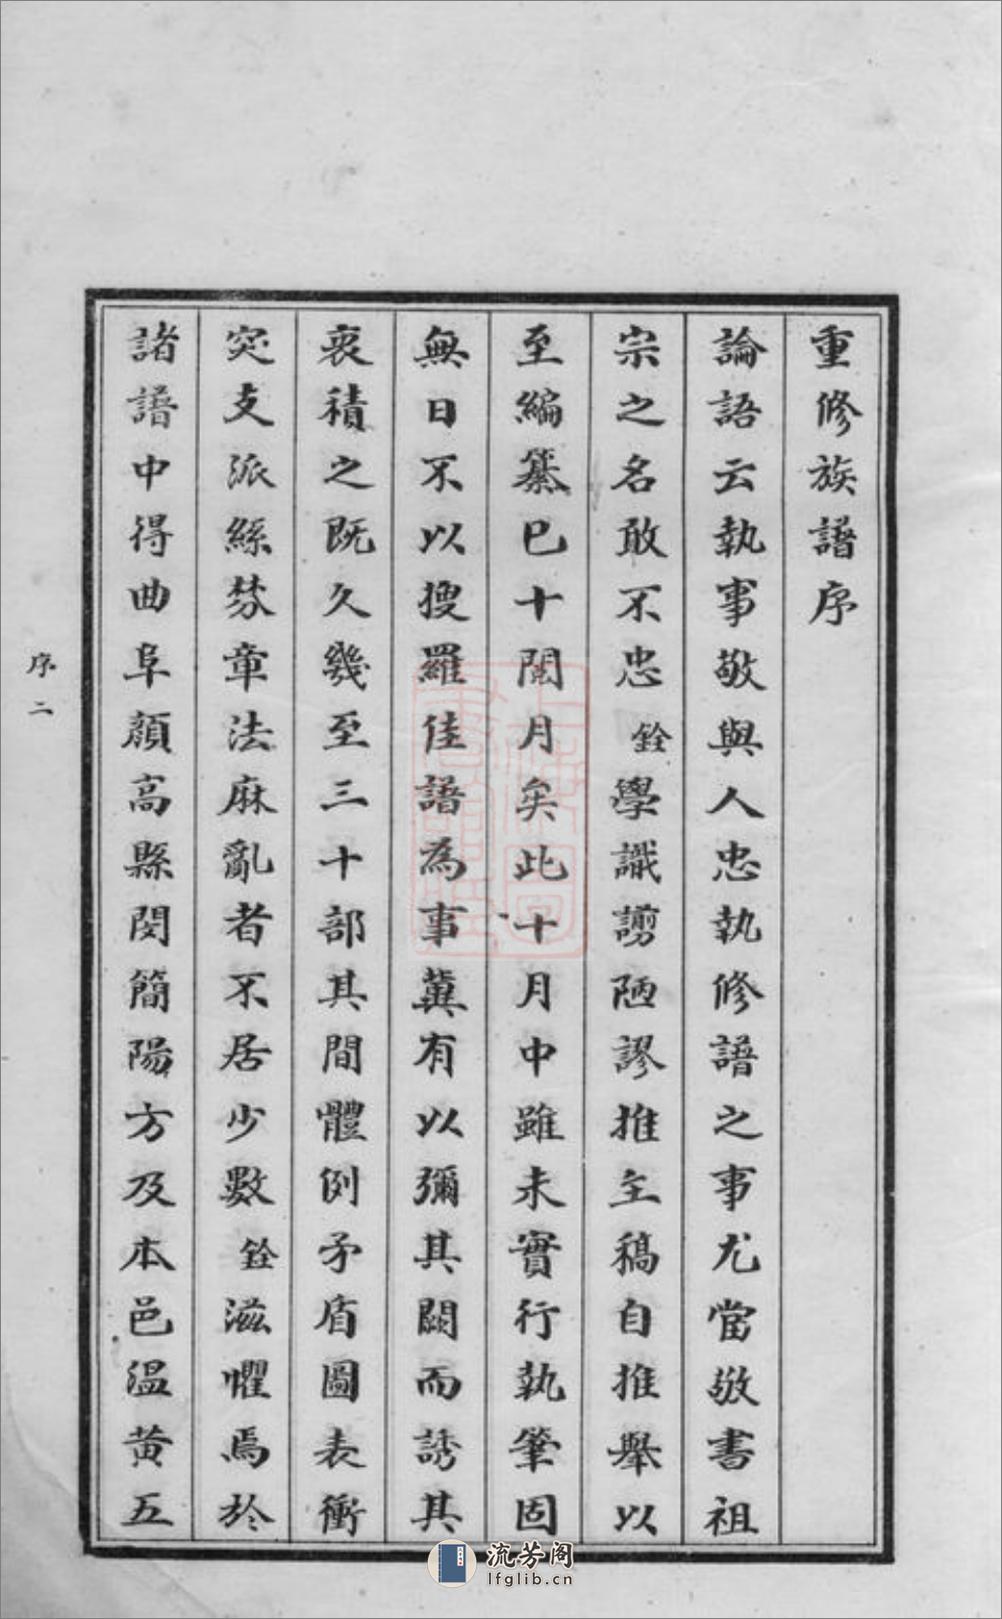 重修族譜序
論語云執事敬與人忠執修譜之事尤當敬書祖
宗之名敢不忠銓學識謭陋謬推主稿自推舉以
至編纂已十閱月矣此十月中雖未實行執筆固
無日不以搜羅佳譜為事冀有以彌其闕而誘其
衷積之既久幾至三十部其間體例矛盾圖表衝
突支派絲棼章法麻亂者不居少數銓滋懼焉於
諸譜中得曲阜顏高縣閔簡陽方及本邑溫黄五
序二
流芳阁
lfglib.cn